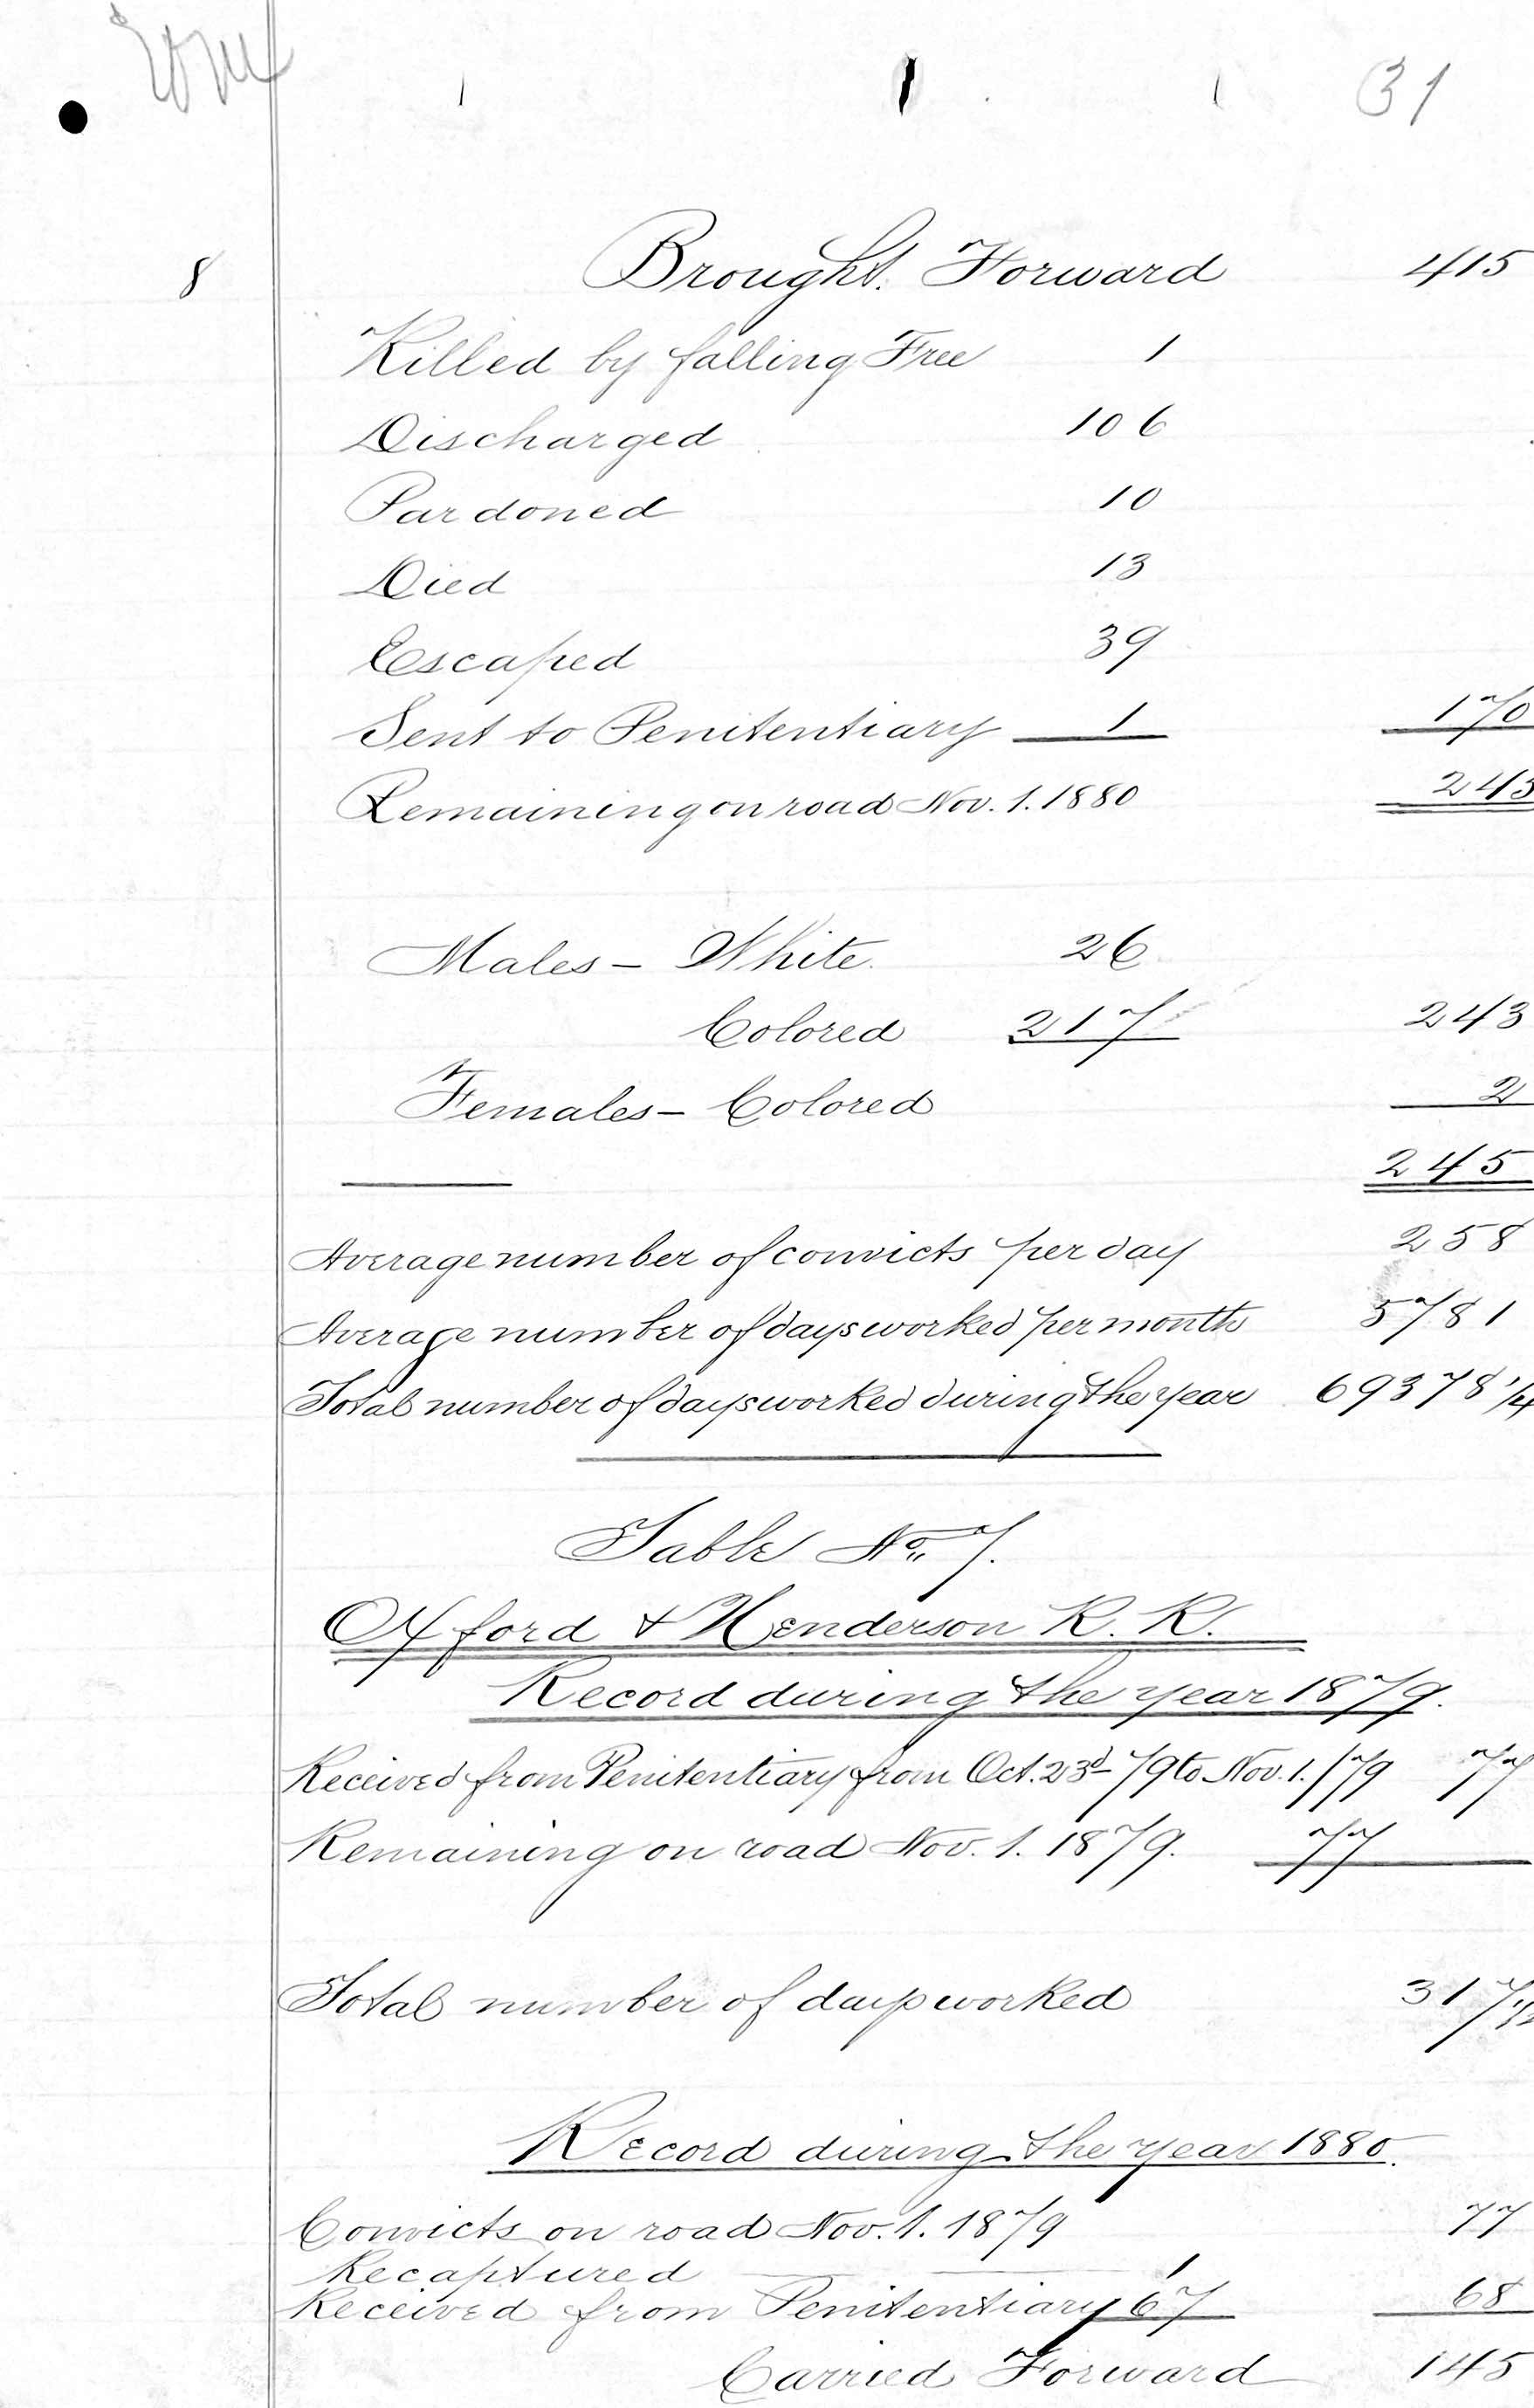 31
8 Brought. Forward 415
Killed by falling Tree 1
Discharged 106
Pardoned 10
Died 13
Escaped 39
Sent to Penitentiary 1 170
Remaining on road Nov. 1. 1880 245
Males – White 26
Colored 217 243
Females – Colored 2
245
Average number of convicts per day 258
Average number of days worked per month 5781
Total number of days worked during the year 69378 1/4
Table No. 7.
Oxford & Henderson R. R.
Record during the year 1879.
Received from Penitentiary from Oct. 23d /79 to Nov. 1. /79 77
Remaining on road Nov. 1. 1879. 77
Total number of days worked 317 1/2
Record during the year 1880.
Convicts on road Nov. 1. 1879 77
Recaptured 1
Received from Penitentiary 67 68
Carried Forward 145